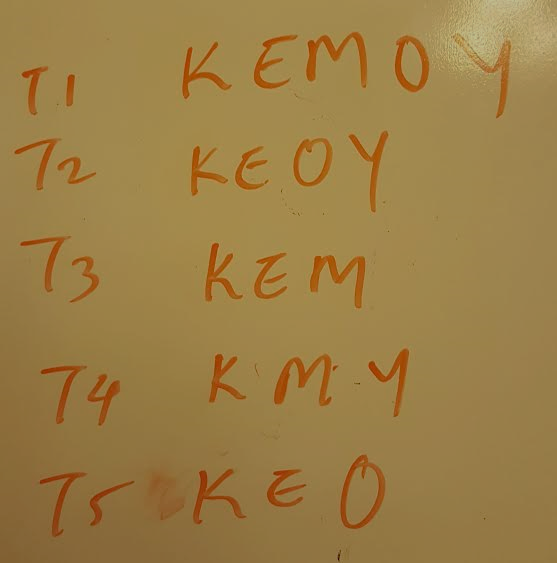 T1 KEMOY
T2 KEOY
T3 KEM
T4 KMY
T5 KEO